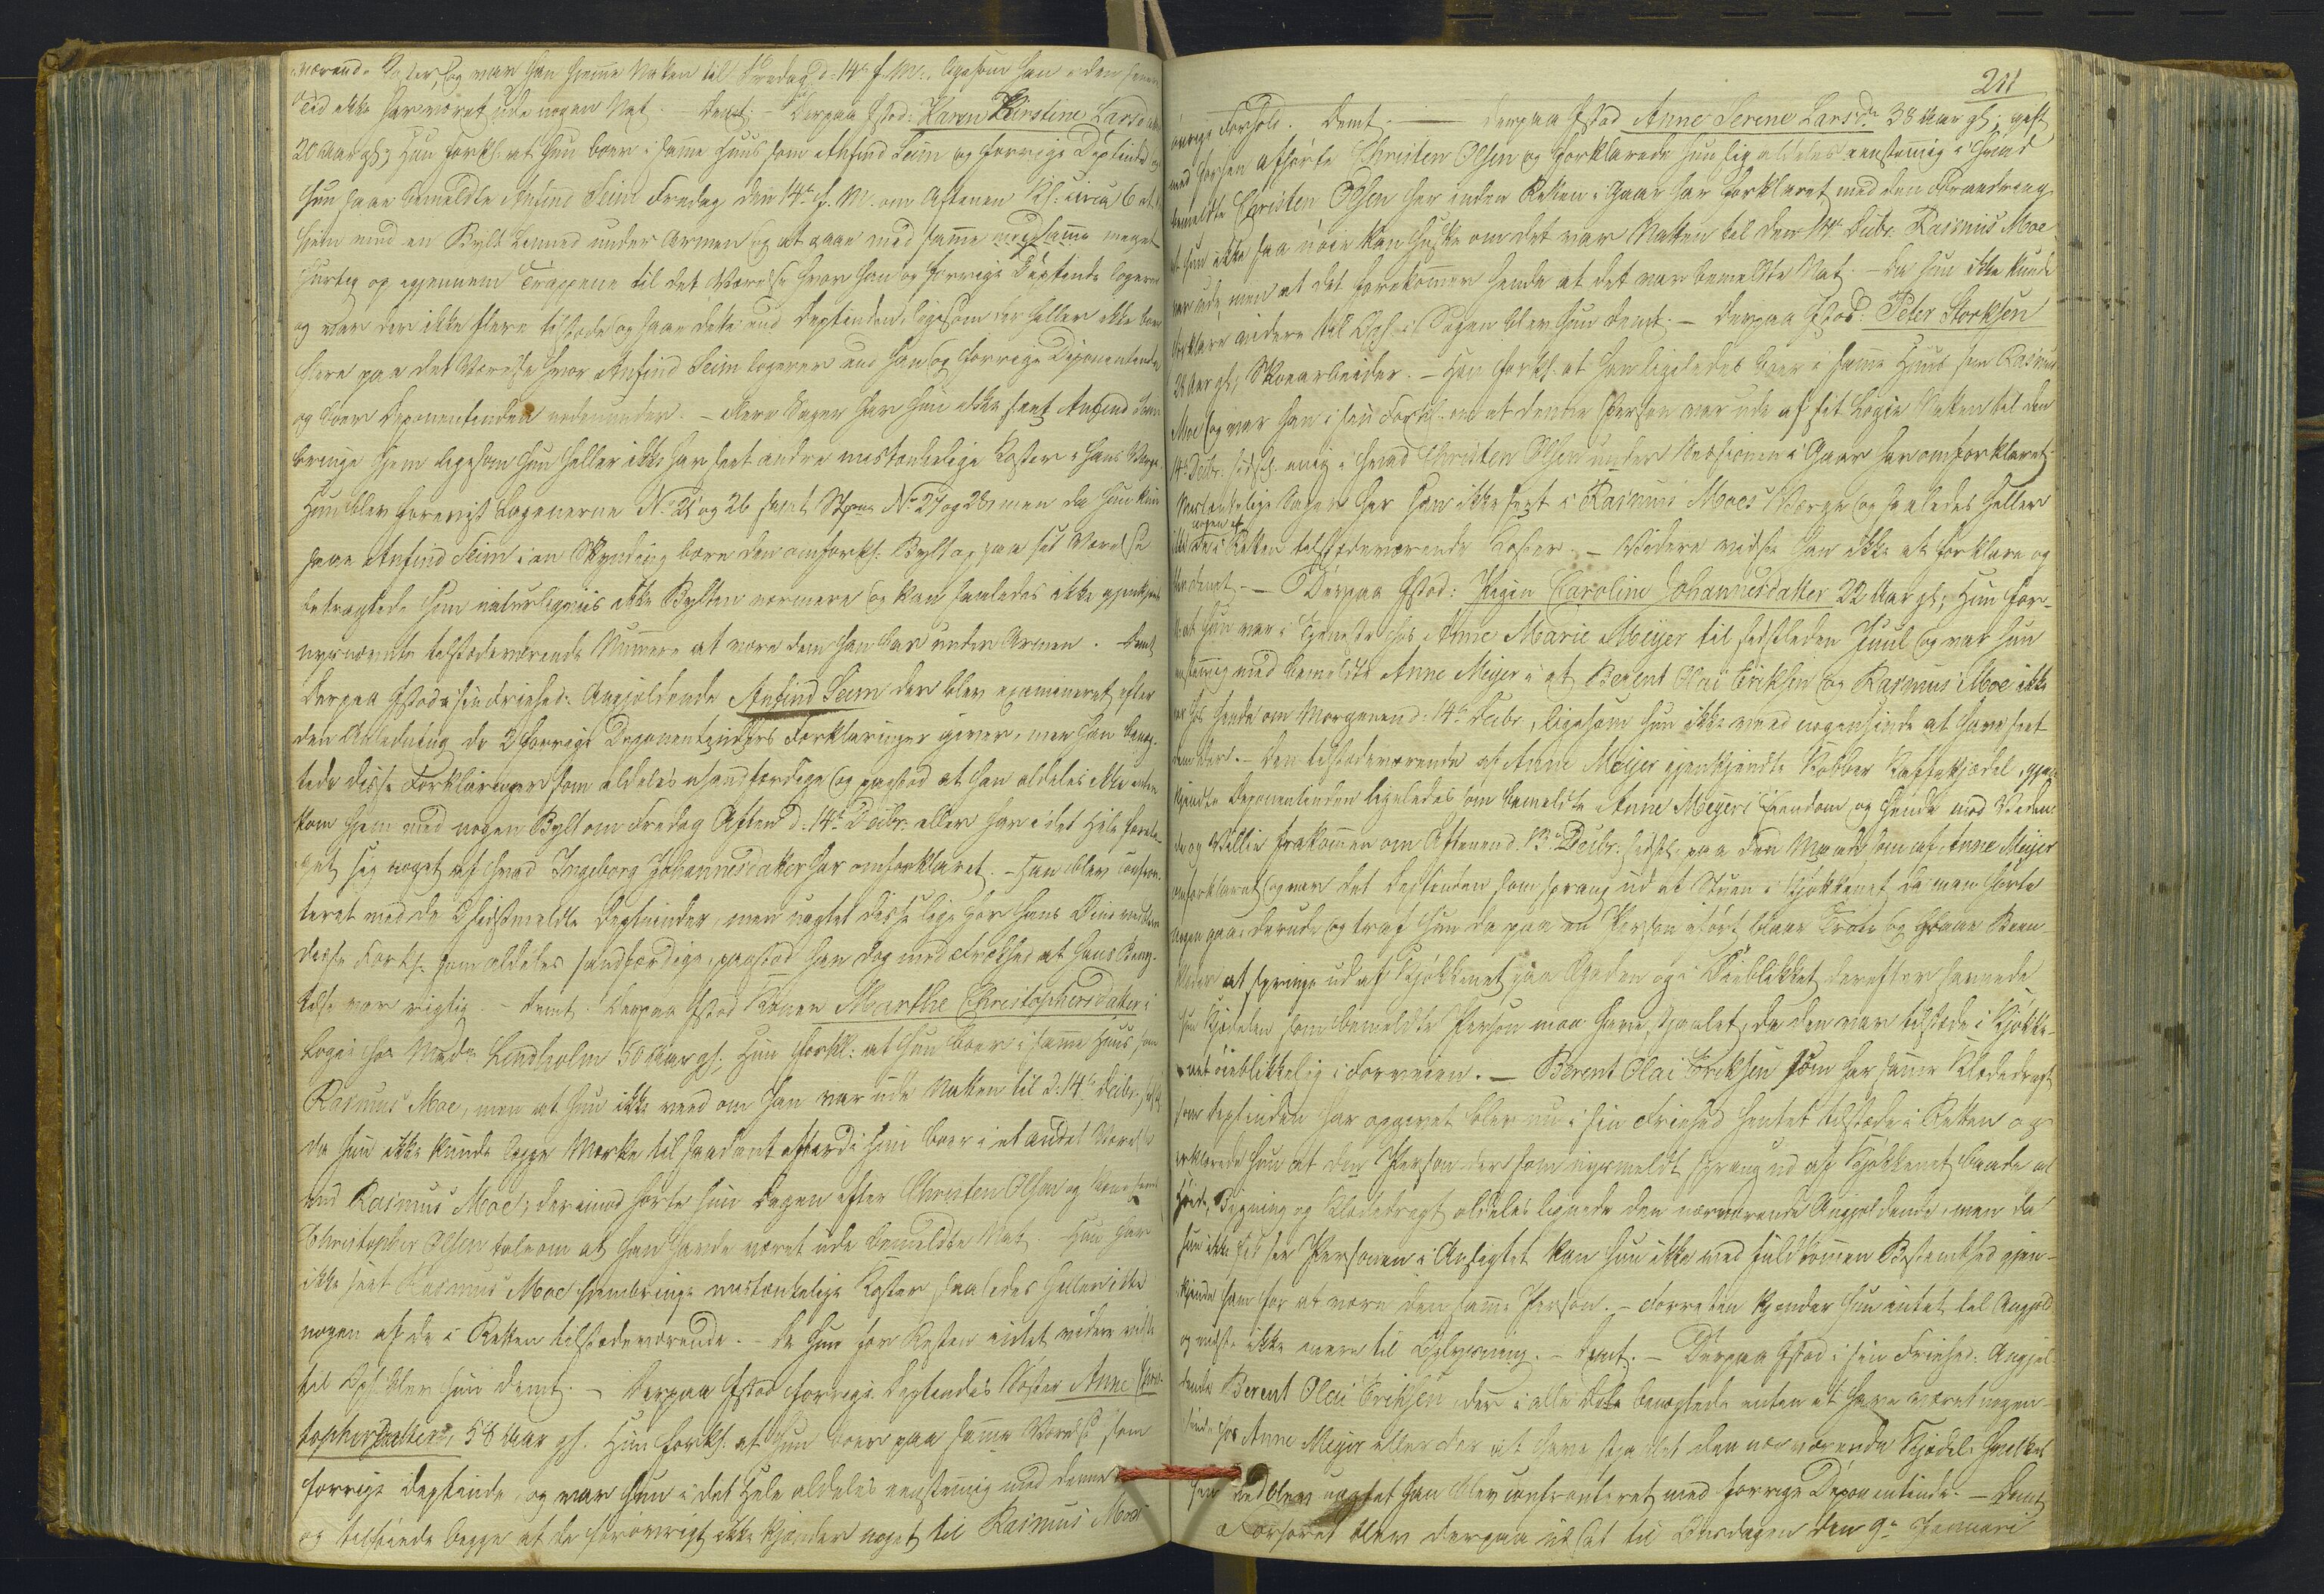 værende Koster, og var han hjemme Natten til Fredag d: 14de f. M., ligesom han i den senere
Tid ikke har været ude nogen Nat. Demt: – Derpaa fstod: Karen Kirstine Larsdatter
20 Aar gl; Hun forkl: at hun boer i samme Huus som Anfind Seim og forrige Deptinde og
hun saae bemeldte Anfind Seim Fredag den 14de f. M. om Aftenen Kl: circa 6 at komme
hjem med en Bylt Linned under Armen og at gaae med samme meget
hurtig op igjennem Trappene til det Værelse hvor han og forrige Deptinde logerer
og var der ikke flere tilstæde og saae dette end Deptinden, ligesom der heller ikke boer
flere paa det Værelse hvor Anfind Seim logerer end han og forrige Deponentinde
og boer Deponentinden nedenunder. – Flere Sager har hun ikke seet Anfind Seim
bringe hjem ligesom hun heller ikke har seet andre mistænkelige Koster i hans Værge.
Hun blev foreviist Lagenerne No 25 og 26 samt No 27 og 28, men da hun kun
saae Anfind Seim i en Skynding bære den omforkl: Bylt op paa sit Værelse
betragtede hun naturligviis ikke Bylten nærmere og kan saaledes ikke gjenkjende
nysnævnte tilstædeværende Nummere at være dem han bar under Armen. Demt
Derpaa fstod i sin Friehed: Angjeldende Anfind Seim der blev examineret efter
den Anledning de 2 forrige Deponentinders Forklaringer giver, men han benæg-
tede disse Forklaringer som aldeles usandfærdige og paastod at han aldeles ikke
kom hjem med nogen Bylt om Fredag Aften d: 14de Decbr: eller har i det Hele foreta-
get sig noget af hvad Ingeborg Johannesdatter har omforklaret. – Han blev confron-
teret med de 2 sidstmeldte Deptinder, men uagtet disse lige for hans Øine
disse Forkl: som aldeles sandfærdige, paastod han dog med Frækhed at hans Benæg-
telse var rigtig. – Demt. Derpaa fstod Konen Marthe Christophersdatter i
Logie hos Madm Lindholm 50 Aar gl; Hun forkl: at hun boer i samme Huus, som
Rasmus Moe, men at hun ikke veed om han var ude Natten til d: 14de Decbr: sidstl:
da hun ikke kunde lægge Mærke til saadant efterdi hun boer i et andet Værelse
end Rasmus Moe; derimod hørte hun Dagen efter Christen Olsen og
Christopher Olsen tale om at han havde været ude bemeldte Nat. Hun har
ikke seet Rasmus Moe hjembringe mistænkelige Koster, saaledes heller ikke
nogen af de i Retten tilstædeværende. – Da hun for Resten intet videre vidste
til Opl: blev hun Demt. – Derpaa fstod forrige Deptindes Søster Anne Chris-
tophersdatter, 58 Aar gl. Hun forkl: at hun boer paa samme Værelse som
forrige Deptinde og var hun i det Hele aldeles eenstemmig med denne
og tilføiede begge at de forøvrigt ikke kjender noget til Rasmus Moes
211
øvrige Forhold. Demt. — Derpaa fstod Anne Serine Larsdtr 38 Aar gl; gift
med forhen afhørte Christen Olsen og forklarede hun sig aldeles eenstemmig i hvad
bemeldte Christen Olsen her inden Retten i Gaar har forklaret med den Forandring
at hun ikke saa nøie kan huske om det var Natten til den 14de Decbr. Rasmus Moe
var ude, men at det forekommer hende at det var bemeldte Nat. – Da hun ikke kunde
forklare videre til Opl: i Sagen blev hun Demt. – Derpaa fstod: Peter Storksen
28 Aar gl; Skoearbeider. – Han forkl: at han ligeledes boer i samme Huus som Rasmus
Moe og var han i sin Forkl: om at denne Person var ude af sit Logie Natten til den
14de Decbr: sidstl: enig i hvad Christen Olsen under Sessionen i Gaar har omforklaret.
Mistænkelige Sager har han ikke seet i Rasmus Moes Værge og saaledes heller
nogen af
ikke de i Retten tilstædeværende Koster. – Videre vidste han ikke at forklare og
Demt. – Derpaa fstod: Pigen Caroline Johannesdatter 22 Aar gl; Hun for-
at hun var i Tjeneste hos Anne Marie Meijer til sidstleden Juul og var hun
enstemmig med bemeldte Anne Meijer i at Berent Olai Eriksen og Rasmus Moe ikke
var hos hende om Morgenen d: 14de Decbr, ligesom hun ikke veed nogensinde at have seet
dem der. – Den tilstædeværende af Anne Meijer igjenkjendte Kobber Kaffekjædel, gjen-
kjendte Deponentinden ligeledes som bemeldte Anne Meijers Eiendom og hende mod Viden-
de og Villie frakommen om Aftenen d. 13de Decbr. sidstl: paa den Maade som af Anne Meijer
omforklaret og var det Deptinden som sprang ud af Stuen i Kjøkkenet da man hørte
nogen gaae derude og traf hun da paa en Person iført blaae Trøie og blaae Been-
klæder at springe ud af Kjøkkenet paa Gaden og i Øieblikket derefter savnede
hun Kjædelen som bemeldte Person maa have stjaalet, da den var tilstæde i Kjøkke-
net øieblikkelig i Forveien. – Berent Olai Eriksen som har samme Klædedragt
som Deptinden har opgivet blev nu i sin Friehed hentet tilstæde i Retten og
erklærede hun at den Person der som nysmeldt sprang ud af Kjøkkenet baade af
Høide, Bygning og Klædedragt aldeles lignede den nærværende Angjeldende, men da
hun ikke fik see Personen i Ansigtet kan hun ikke med fuldkommen Bestemthed gjen-
kjende ham for at være den samme Person. – Forresten kjender hun intet til Angjeld
og vidste ikke mere til Oplysning. – Demt. – Derpaa fstod i sin Friehed: Angjel-
dende Berent Olai Eriksen, der i alle Dele benægtede enten at have været nogen-
sinde hos Anne Meijer eller der at have stjaalet den nærværende Kjædel. Hvilket
han vedblev uagtet han blev confronteret med forrige Deponentinde. – Demt
Forhøret blev derpaa udsat til Onsdagen den 9de Januari